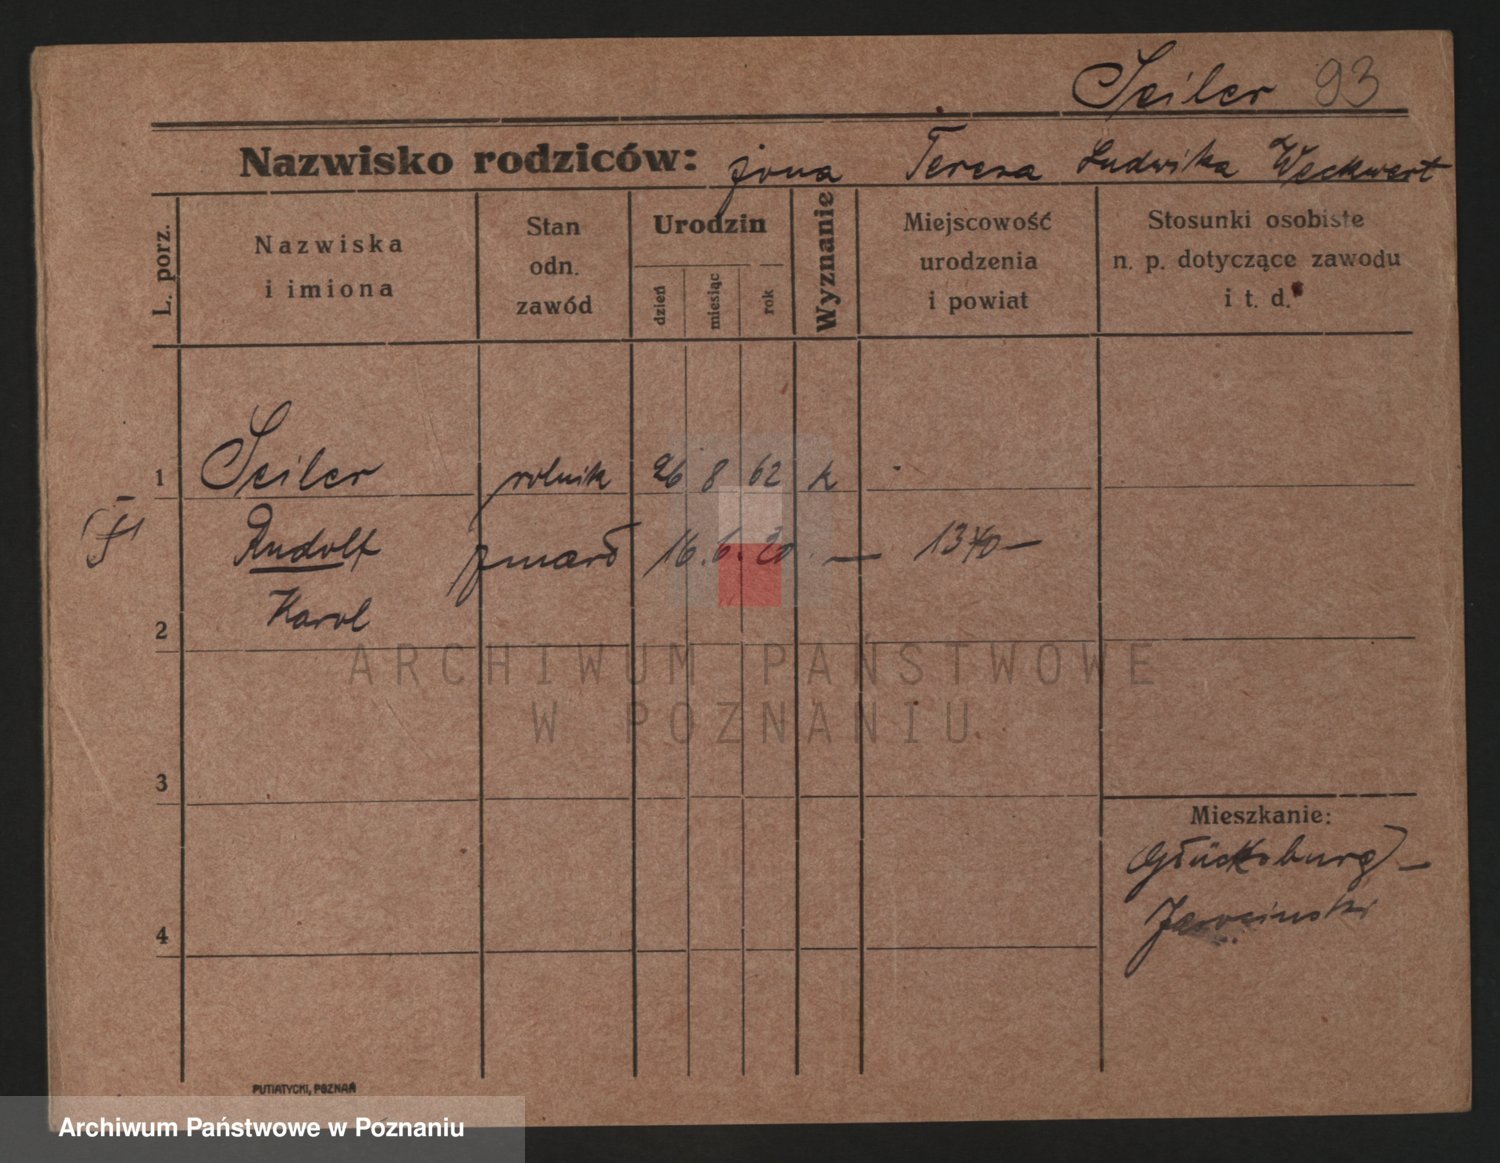 Seiler 93
Nazwisko rodziców: żona Teresa Ludwika Weckwert
L. porz.
Nazwiska
i imiona
Stan
odn.
zawód
Urodzin
dzień
miesiąc
rok
Wyznanie
Miejscowość
urodzenia
i powiat
Stosunki osobiste
n. p. dotyczące zawodu
i t. d.
1 Seiler rolnik 26 8 62 k
Rudolf zmarł 16.6.20 — 1340 —
Karol
2
3
4
Mieszkanie:
Glücksburg —
Jarocinski
PUTIATYCKI, POZNAŃ
ARCHIWUM PAŃSTWOWE
W POZNANIU
Archiwum Państwowe w Poznaniu